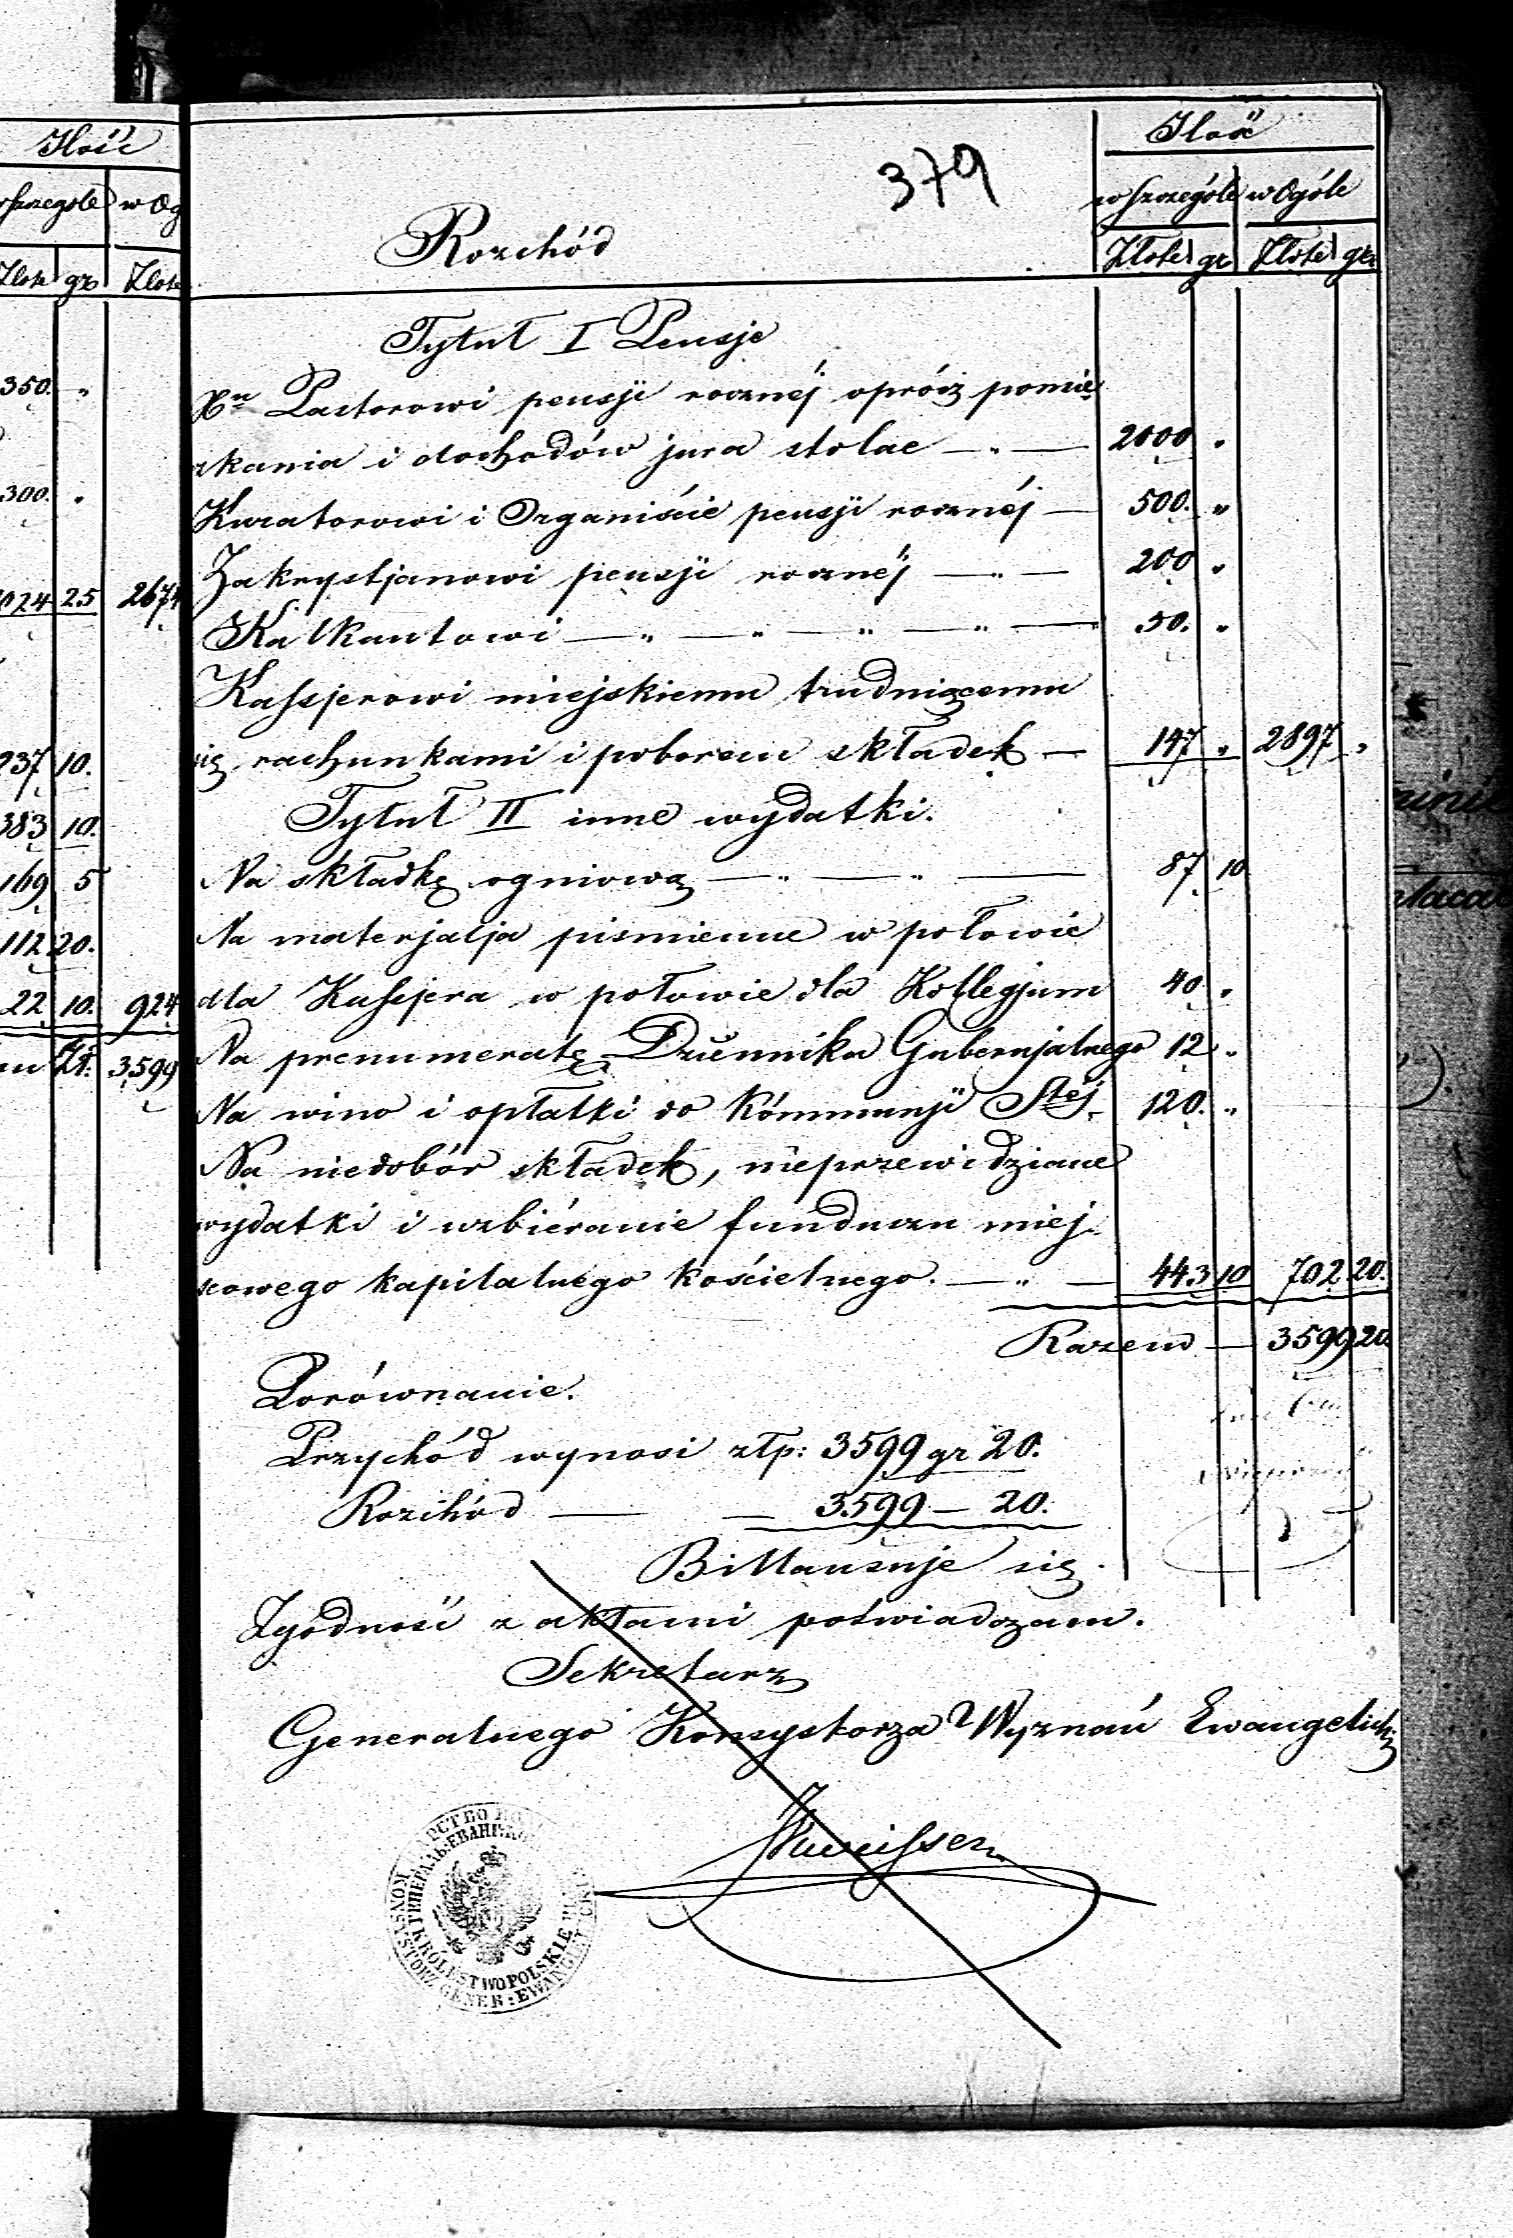 Ilość
w Szczególe w Og
Złote gr Złote
350. "
300. "
1024 25 2674
237 10.
383 10.
169 5
112 20.
22 10. 924
Zł: 3599
379
Rozchód
Ilość
w Szczególe w Ogóle
Złote gr Złote gr
Tytuł I Pensje
Xu Pastorowi pensji rocznéj oprócz pomie
szkania i dochodów jura stolae — " — 2000 "
Kuratorowi i Organiście pensji rocznéj — 500. "
Zakrystjanowi pensji rocznéj — " — 200 "
Kalkantowi — " — " — " — " — 50. "
Kassjerowi miejskiemu trudniącemu
się rachunkami i poborem składek — 147 " 2897 "
Tytuł II inne wydatki.
Na składkę ogniową — " — " — 87 10
Na materjalja pismienne w połowie
dla Kassjera w połowie dla Kollegjum 40 "
Na prenumeratę Dziennika Gubernjalnego 12 "
Na wino i opłatki do Kómmunji Stéj. 120. "
Na niedobór składek, nieprzewidziane
wydatki i uzbiéranie funduszu miej-
scowego kapitalnego kościelnego. — " — 443 10 702 20.
Razem — 3599 20.
Porównanie.
Przychód wynosi złp: 3599 gr 20.
Rozchód — — 3599 — 20.
Billansuje się.
Zgodność z aktami poświadczam.
Sekretarz
Generalnego Konsystorza Wyznań Ewangelick:
KRÓLESTWO POLSKIE